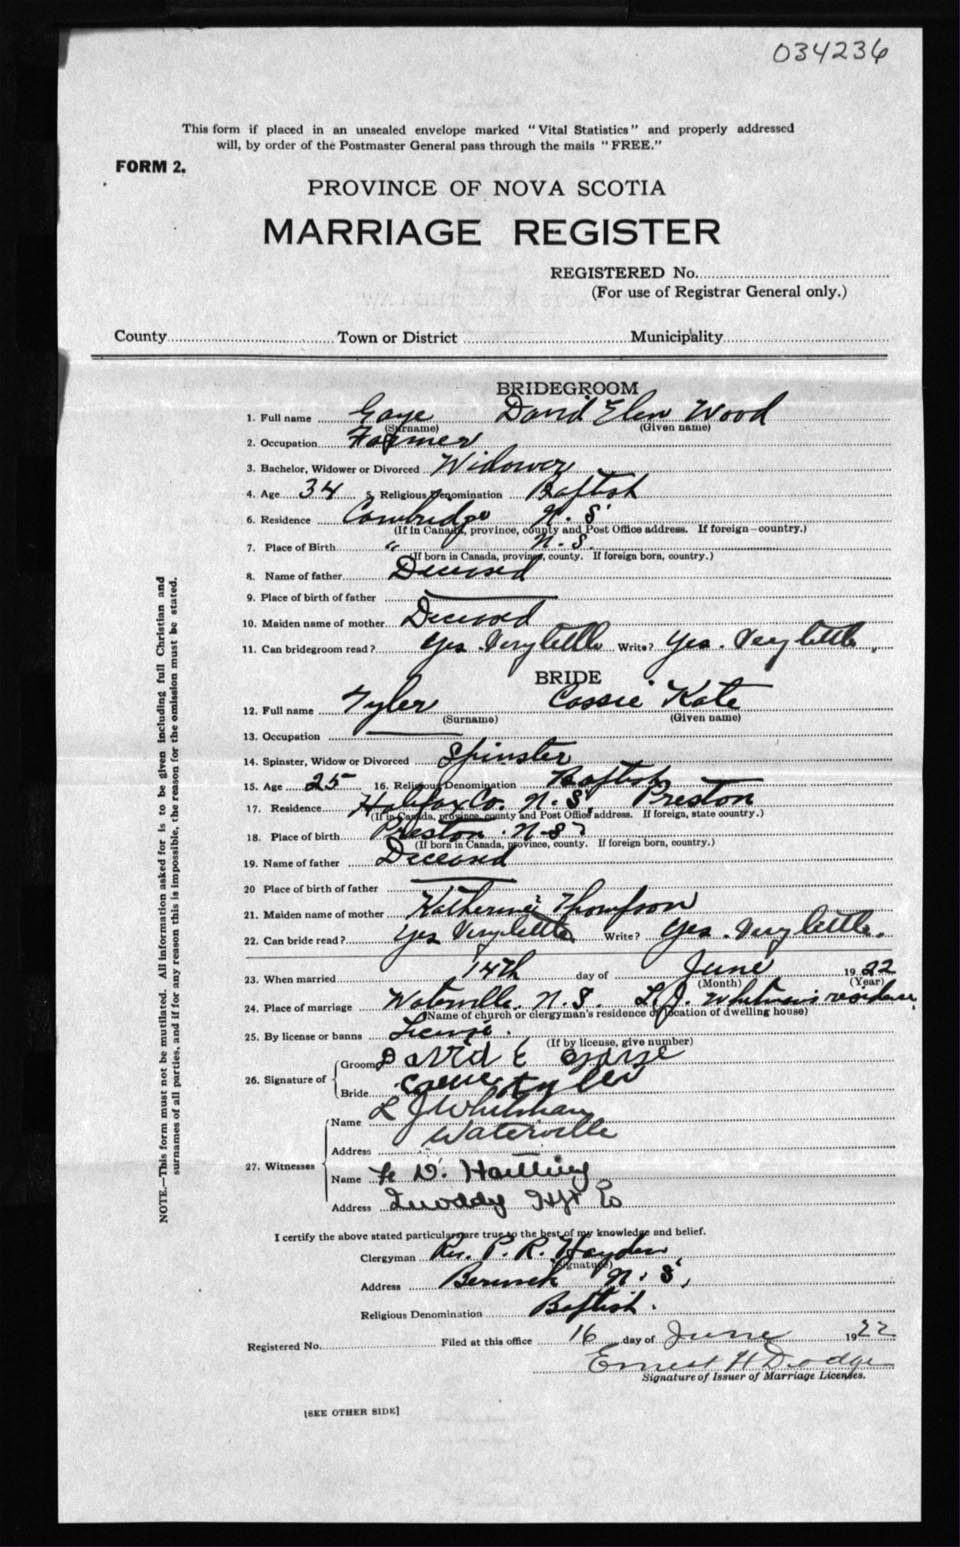 034236
This form if placed in an unsealed envelope marked "Vital Statistics" and properly addressed
will, by order of the Postmaster General pass through the mails "FREE."
FORM 2.
PROVINCE OF NOVA SCOTIA
MARRIAGE REGISTER
REGISTERED No.
(For use of Registrar General only.)
County Town or District Municipality
BRIDEGROOM
1. Full name Gaye David Elen Wood
(Surname) (Given name)
2. Occupation Farmer
3. Bachelor, Widower or Divorced Widower
4. Age 34 5. Religious Denomination Baptist
6. Residence Cambridge N. S.
(If in Canada, province, county and Post Office address. If foreign—country.)
7. Place of Birth " N. S.
(If born in Canada, province, county. If foreign born, country.)
8. Name of father Deceased
9. Place of birth of father
10. Maiden name of mother Deceased
11. Can bridegroom read? Yes. Very little Write? Yes. Very little.
BRIDE
12. Full name Tyler Cassie Kate
(Surname) (Given name)
13. Occupation
14. Spinster, Widow or Divorced Spinster
15. Age 25 16. Religious Denomination Baptist
17. Residence Halifax Co. N. S. Preston
(If in Canada, province, county and Post Office address. If foreign, state country.)
18. Place of birth Preston. N. S.
(If born in Canada, province, county. If foreign born, country.)
19. Name of father Deceased
20 Place of birth of father
21. Maiden name of mother Katherine Thompson
22. Can bride read? Yes Very little Write? Yes. Very little.
23. When married 14th day of June 1922
(Month) (Year)
24. Place of marriage Waterville. N. S. L. J. Whitman's residence.
(Name of church or clergyman's residence or location of dwelling house)
25. By license or banns License.
(If by license, give number)
26. Signature of Groom David E
Bride Tyler
27. Witnesses
Name L J Whitman
Address Waterville
Name D. Hartling
Address Quoddy Hfx Co
I certify the above stated particulars are true to the best of my knowledge and belief.
Clergyman Rev. P. R. Hayden
(Signature)
Address Berwick N. S,
Religious Denomination Baptist.
Registered No. Filed at this office 16 day of June 1922
Ernest H Dodge
Signature of Issuer of Marriage Licenses.
[SEE OTHER SIDE]
NOTE.—This form must not be mutilated. All information asked for is to be given including full Christian and
surnames of all parties, and if for any reason this is impossible, the reason for the omission must be stated.